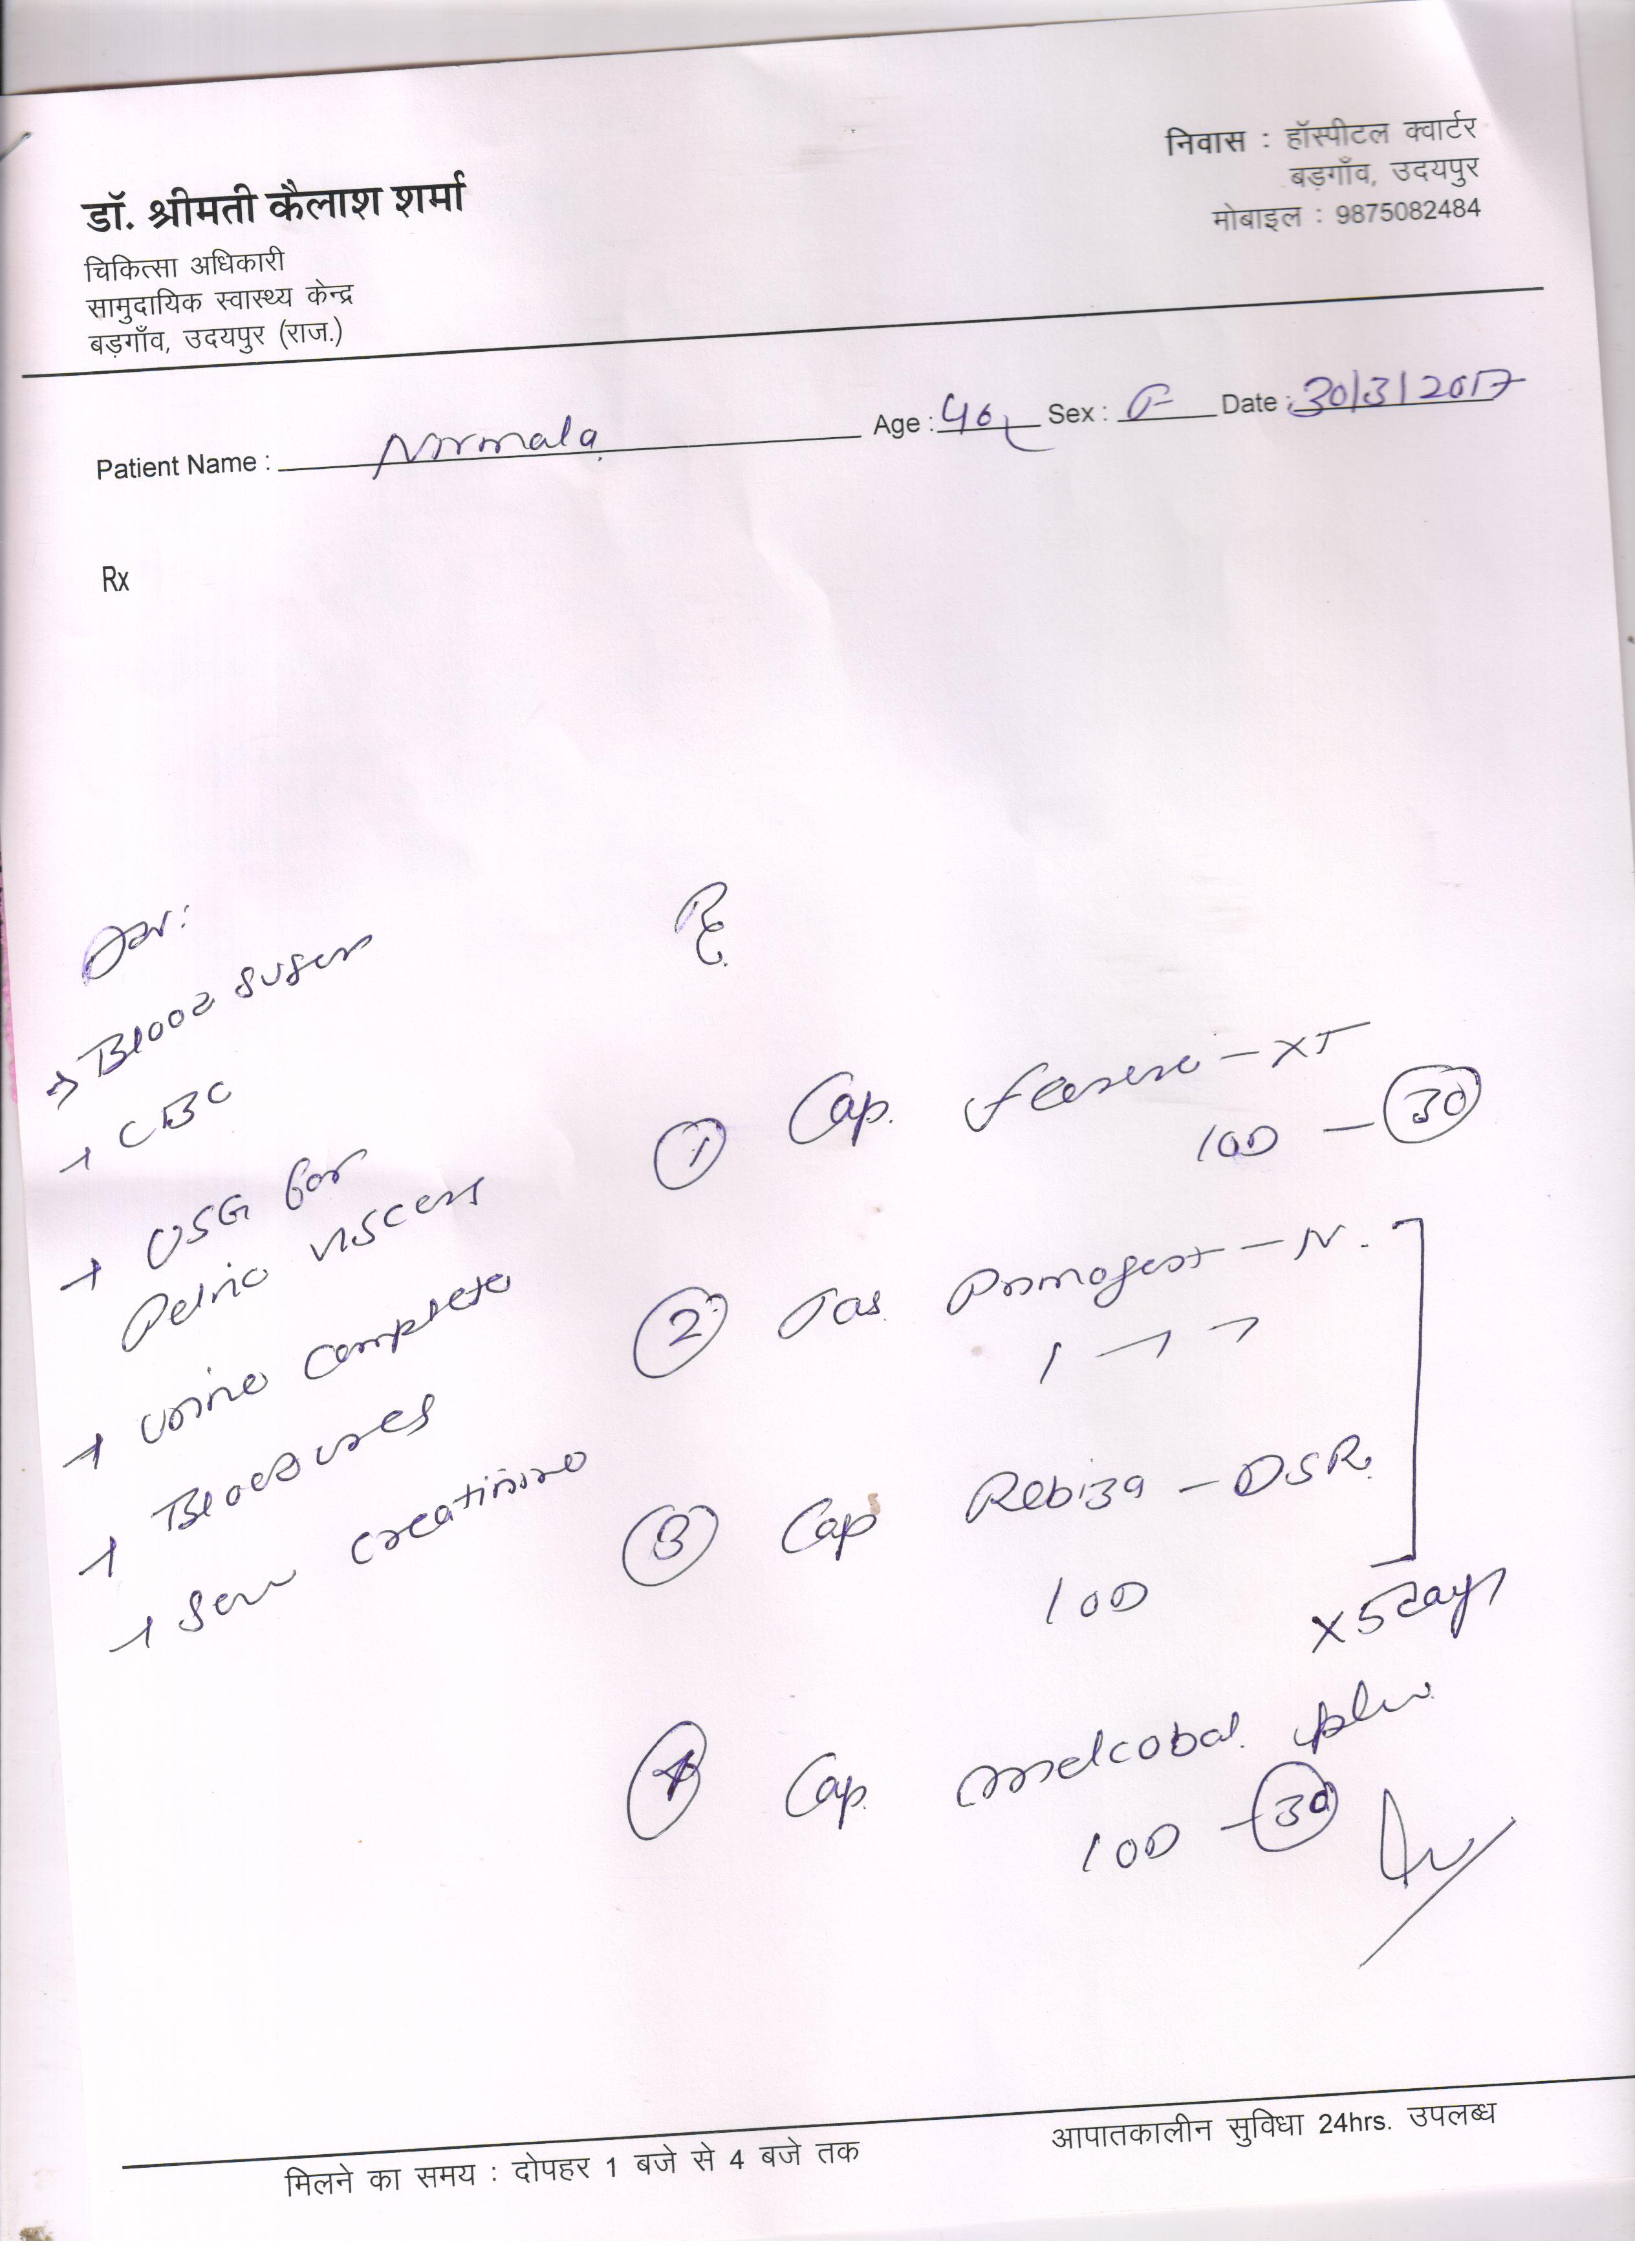 डॉ. श्रीमती कैलाश शर्मा
चिकित्सा अधिकारी
सामुदायिक स्वास्थ्य केन्द्र
बड़गाँव, उदयपुर (राज.)
निवास : हॉस्पीटल क्वार्टर
बड़गाँव, उदयपुर
मोबाइल : 9875082484
Patient Name : Nirmala Age : 40 Sex : F Date : 30/3/2017
Rx
Adv:
→ Blood sugar
→ CBC
→ USG for
Pelvic viscera
→ Urine complete
→ Blood urea
→ Serum creatinine
Rx
① Cap. - XT
1 OD - 30
② Tab. - N.
1
③ Cap Rebiza - DSR
1 OD
x 5 days
④ Cap. plus
1 OD - 30
मिलने का समय : दोपहर 1 बजे से 4 बजे तक
आपातकालीन सुविधा 24hrs. उपलब्ध